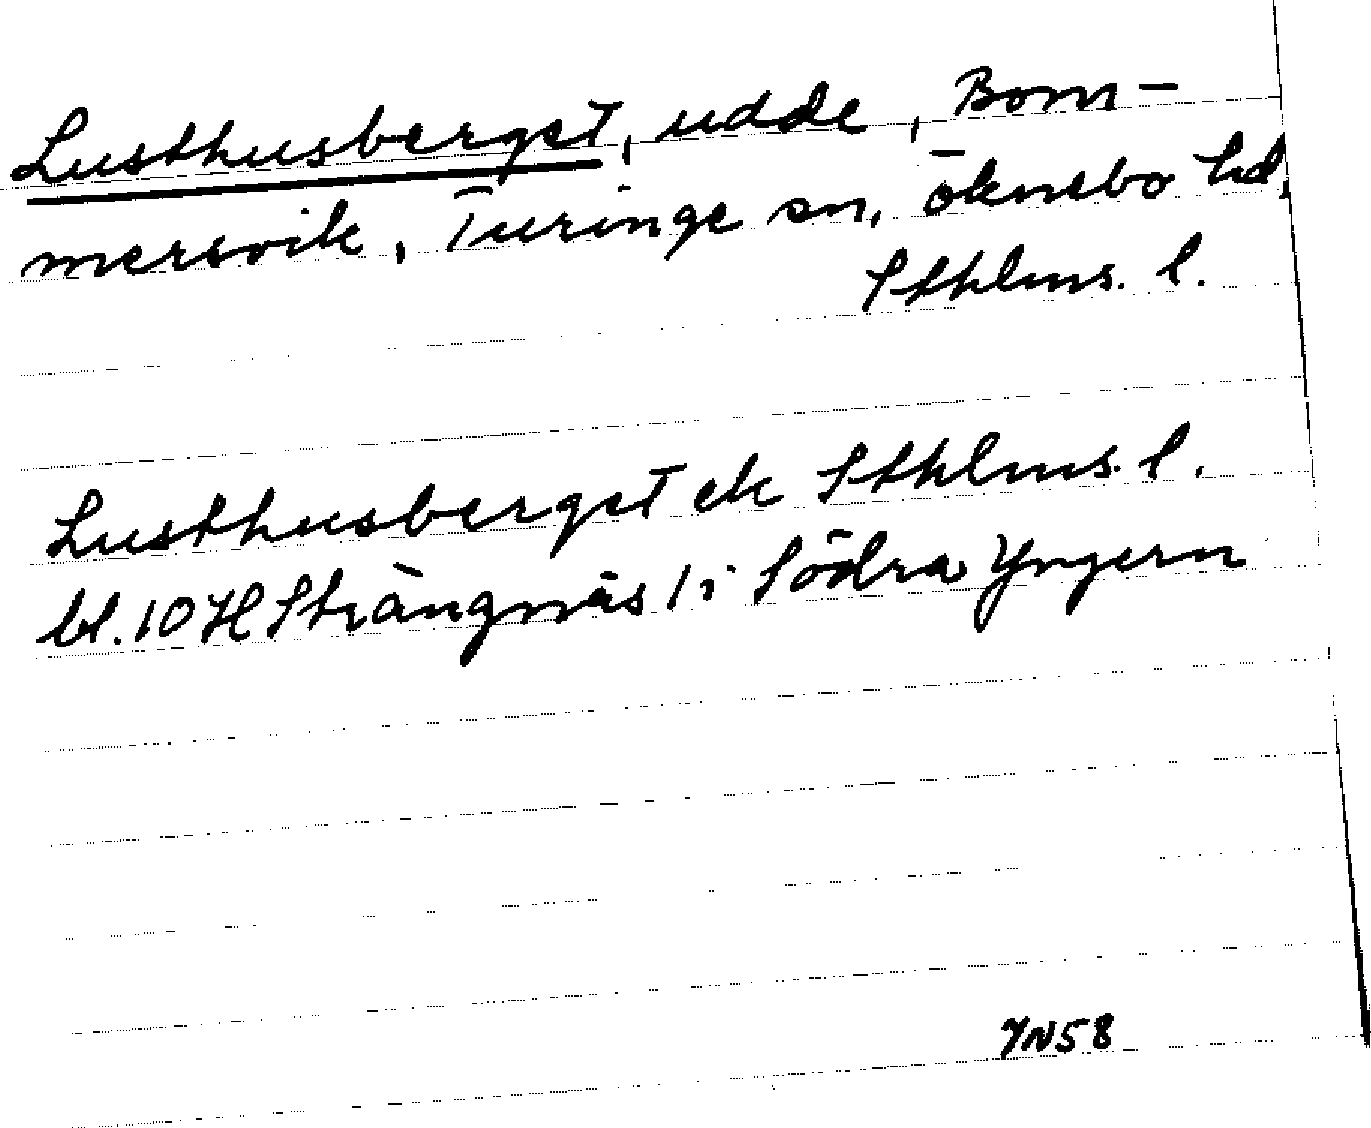 Lusthusberget, udde, Bom-
mersvik, Turinge sn, Öknebo hd,
Sthlms. l.
Lusthusberget ek Sthlms. l.
bl. 10H Strängnäs 1: Södra Yngern
YN58